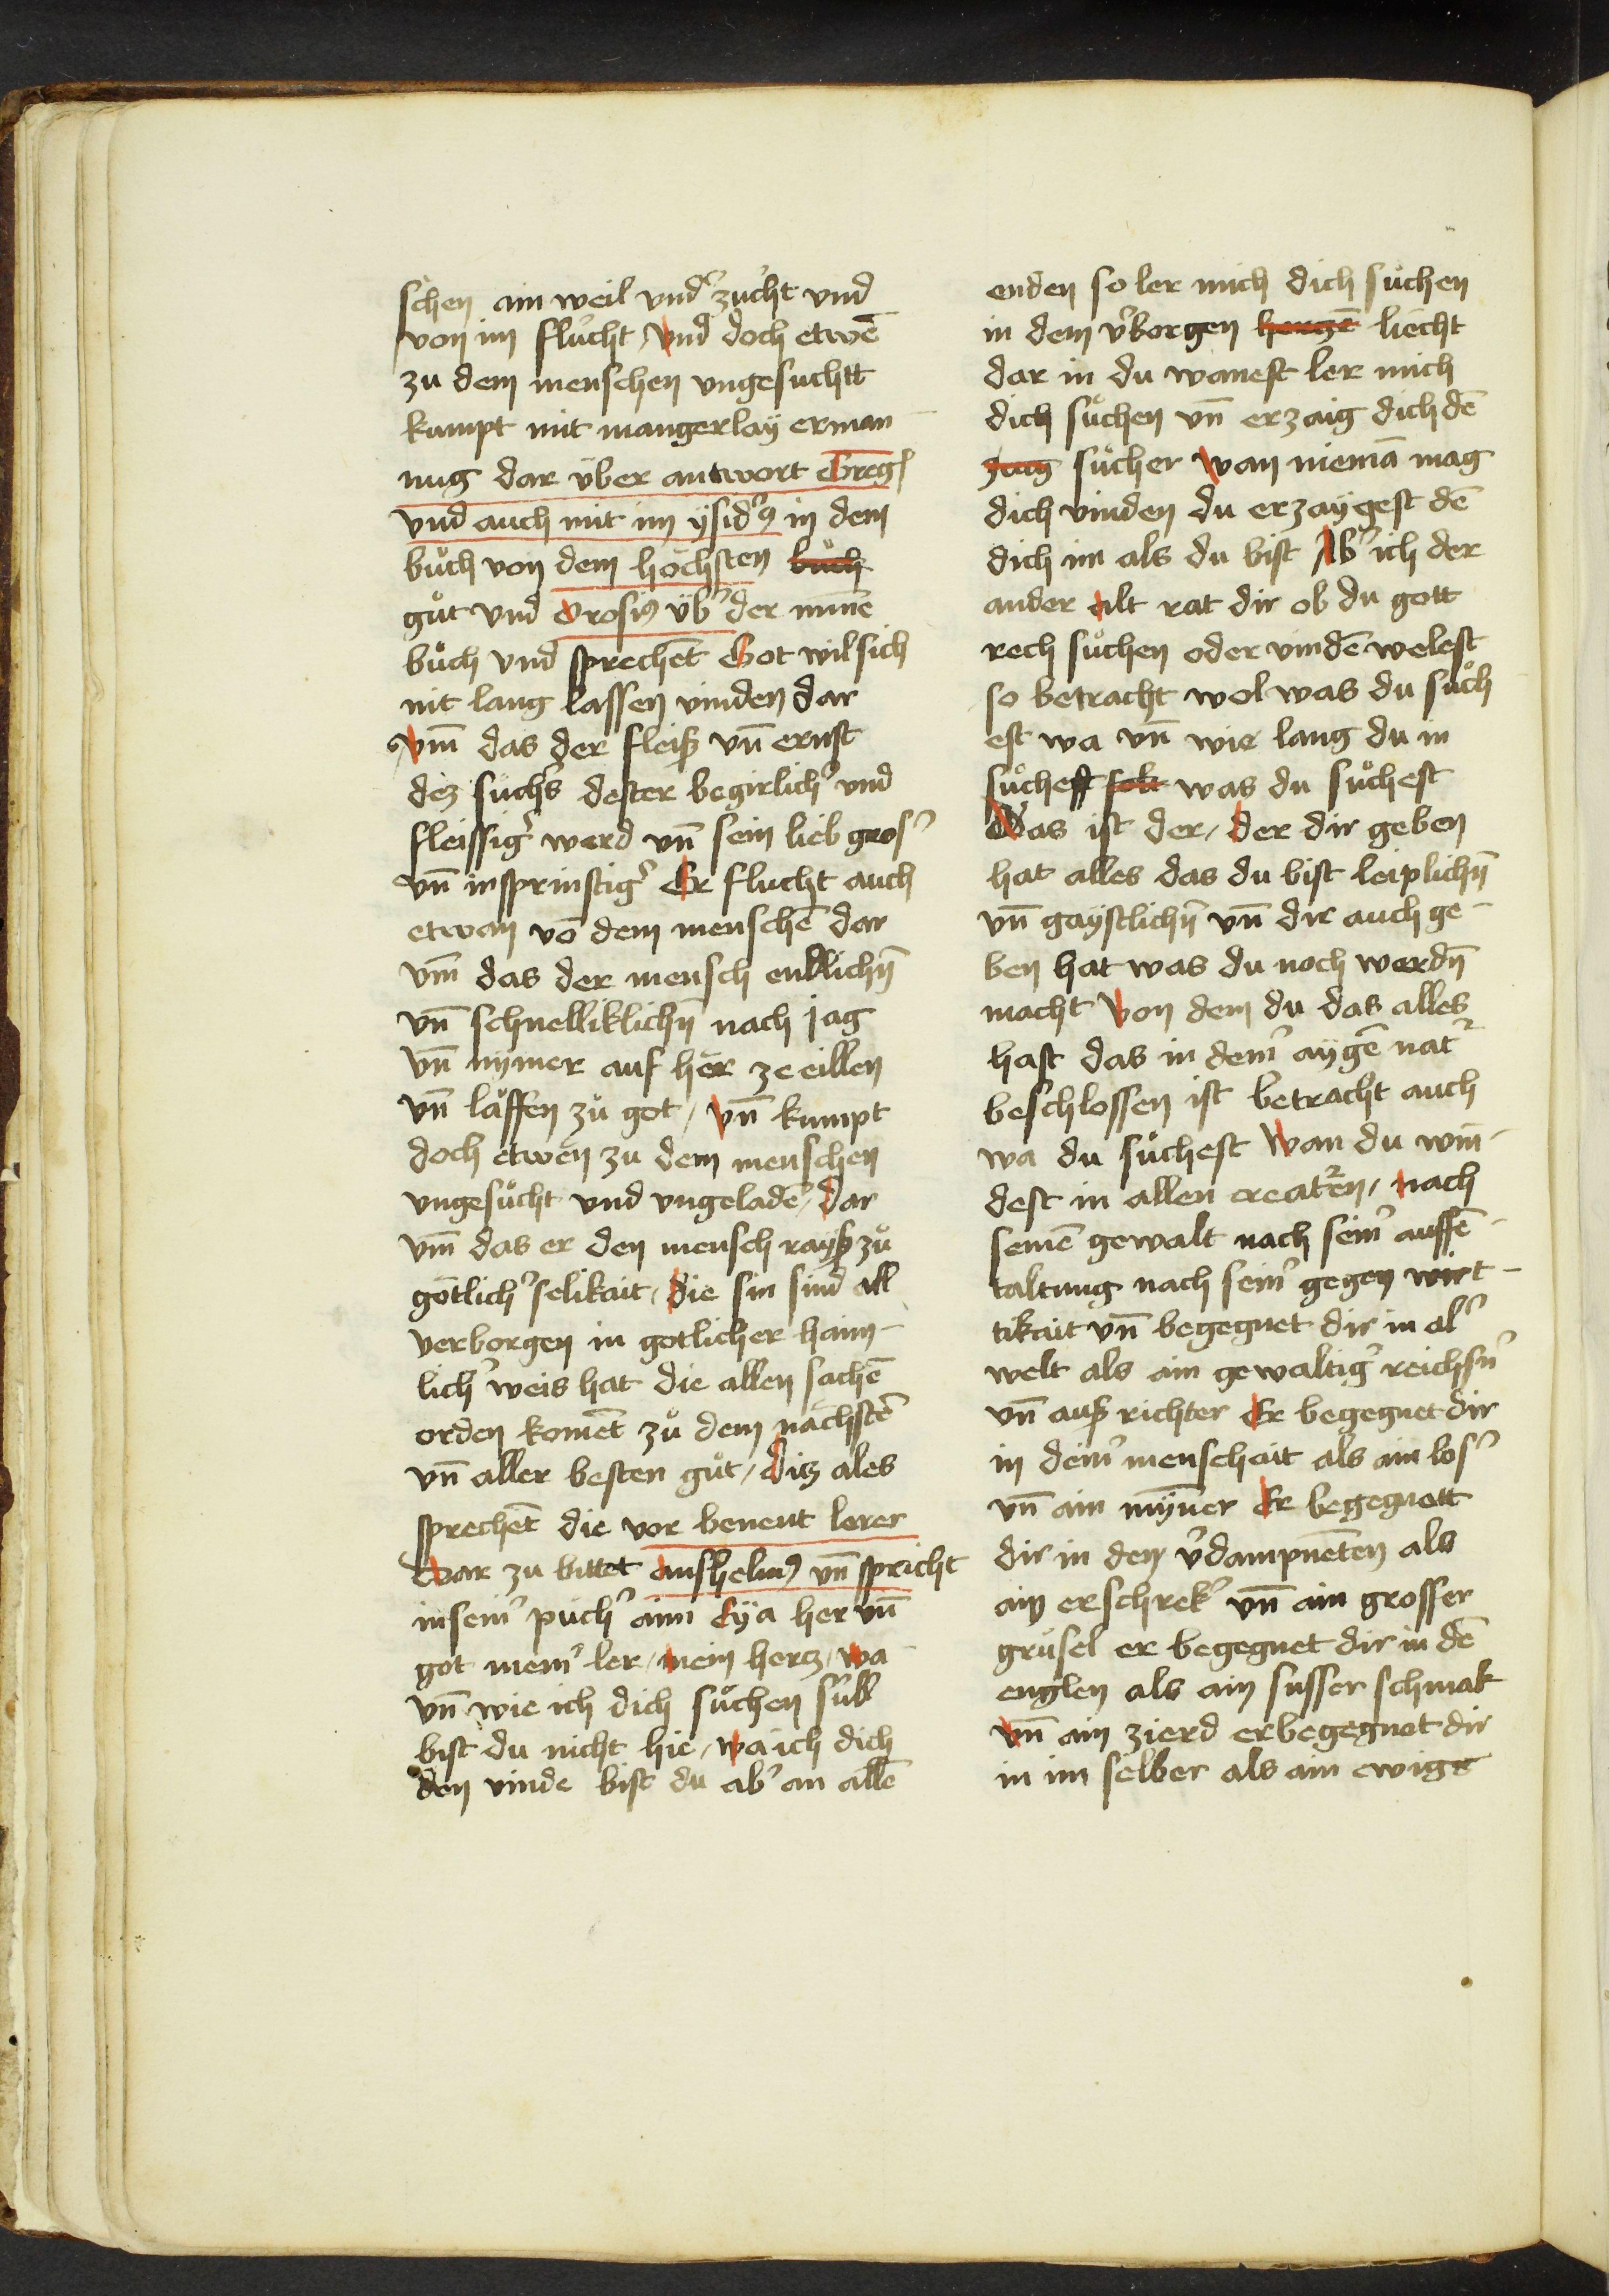 schen ain weil vnd' zucht vnd
von im flucht / vnd doch etwē
zu dem menschen vngesuchtt
kumpt mit mangerlay erman
nug dar über antwort Greg'
vnd auch mit im ysid'9 in dem
bůch von dem höchsten buch
gůt vnd Orosi9 üb' der minē
bůch vnd sprechēt Got wil sich
nit lang lassen vinden dar
vm̄ das der fleiß vn̄ ernst
dez sůch's dester begirlich' vnd
fleissig' werd vn̄ sein lieb gros'
vn̄ insprinstig' Er flucht auch
etwan vō dem menschē dar
vm̄ das der mensch endlichn̄
vn̄ schnelliklichn̄ nach jag
vn̄ nymer auf hör ze eillen
vn̄ läffen zů got / vn̄ kumpt
doch etwen zu dem menschen
vngesůcht vnd vngeladē / dar
vm̄ das er den mensch rayß zů
götlich' selikait / die sin sind all
verborgen in gotlicher haim-
lich' weis hat die allen sachē
orden komēt zů dem nächstē
vn̄ aller besten gůt / ditz ales
sprechēt die vor benent lerer
dar zu bittet anshelm9 vn̄ spricht
in sein' půch' aim Eya her vn̄
got mein' ler / mein hertz / wa
vn̄ wie ich dich sůchen süll
bist du nicht hie / wa ich dich
den vinde bist du ab' an allē
enden so ler mich dich sůchen
in dem v'borgen hertzē liecht
dar in du wonest ler mich
dich sůchen vn̄ erzaig dich dē
sůcher wan niemā mag
dich vinden du erzaygest dē
dich im als du bist Ab' ich der
ander alt rat dir ob du gott
rech sůchen oder vindē welest
so betracht wol was du sůch
est wa vn̄ wie lang du in
sůchest solt was du sůchest
Das ist der / der dir geben
hat alles das du bist leiplichn̄
vn̄ gaystlichn̄ vn̄ dir auch ge-
ben hat was du noch werdn̄
macht von dem du das alles
hast das in dein' aygē nat'
beschlossen ist betracht auch
wa du sůchest wan du vin-
dest in allen creatren / nach
seinē gewalt nach sein' auffē-
taltung nach sein' gegen wirt-
tikait vn̄ begegnet dir in al'
welt als ain gewaltig' reichsn'
vn̄ auß richter Er begegnet dir
in dein' menscheit als ain los'
vn̄ ain mynner Er begegnett
dir in den v'dampnēten als
ain erschrek' vn̄ ain grosser
grüsel er begegnet dir in dē
englen als ain susser schmak
vn̄ ain zierd er begegnet dir
in im selber als ain ewige